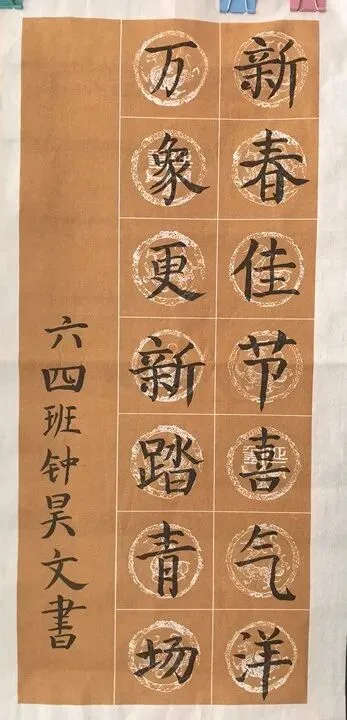 新春佳节喜气洋
万象更新踏青场
六四班钟昊文書